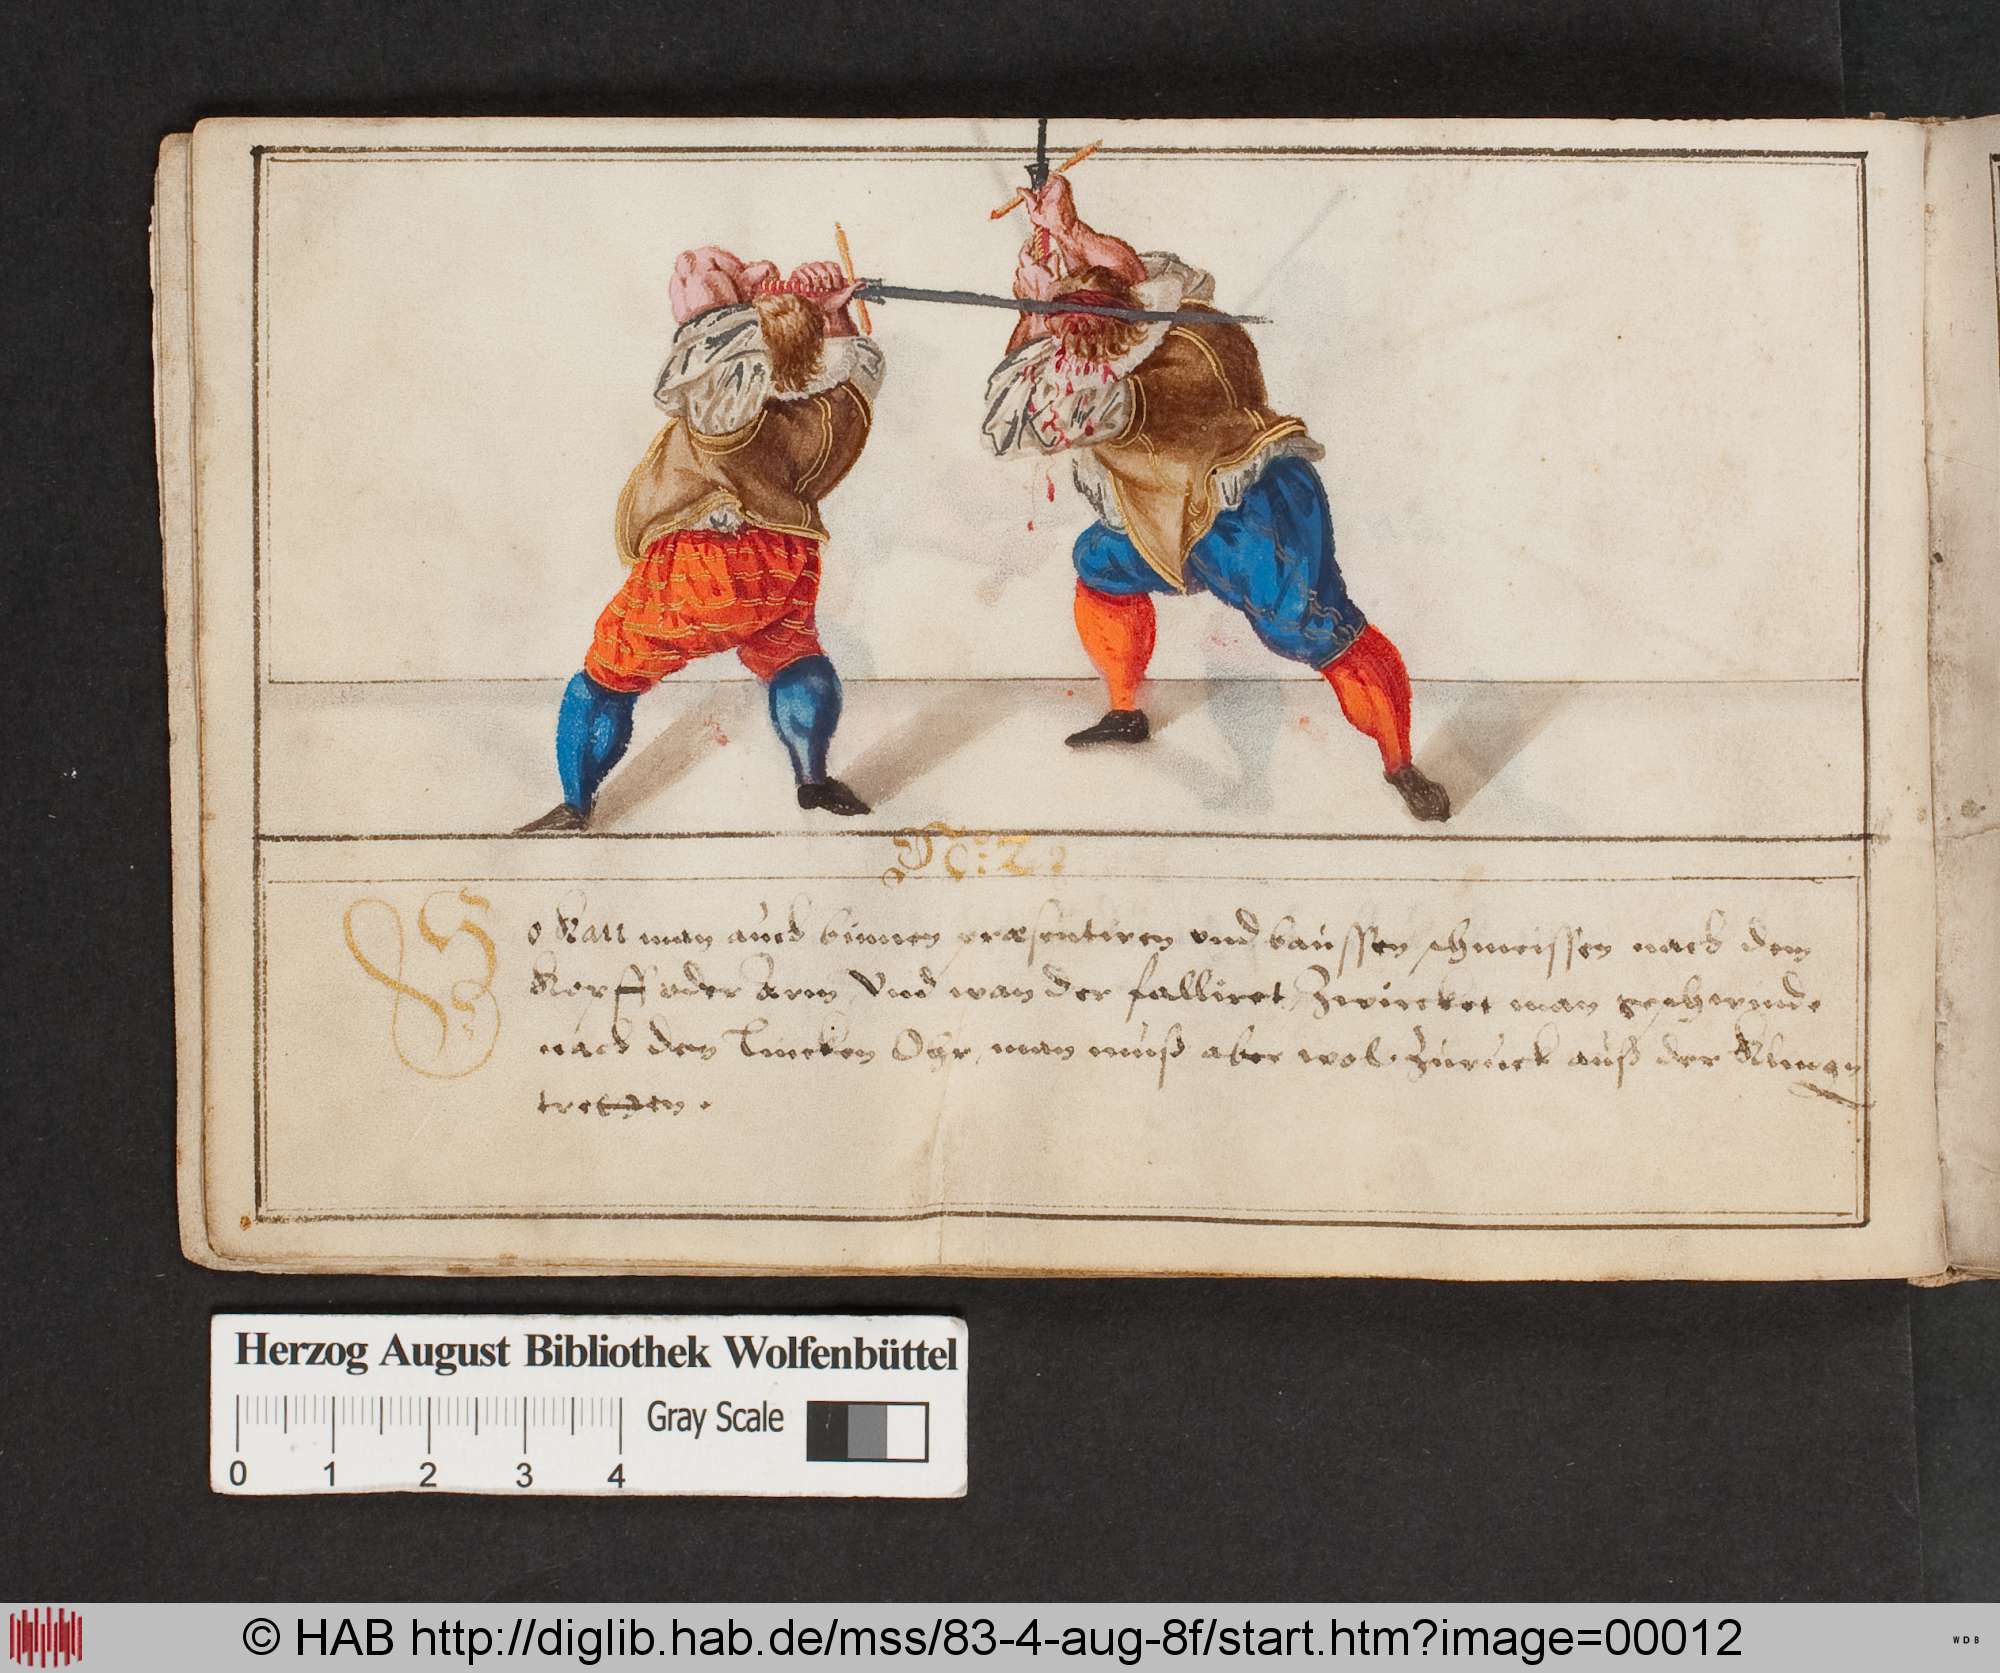 No: 2
So kan man auch binnen præsentiren vnd baussen schmeissen nach dem
Kopff oder Arm, Vnd wan der falliret, Zwircket man geschwinde
nach den lincken Ohr, man muß aber wol Zuruck auß der Klingen
tretten.
Herzog August Bibliothek Wolfenbüttel
Gray Scale
0 1 2 3 4
© HAB http://diglib.hab.de/mss/83-4-aug-8f/start.htm?image=00012
WDB